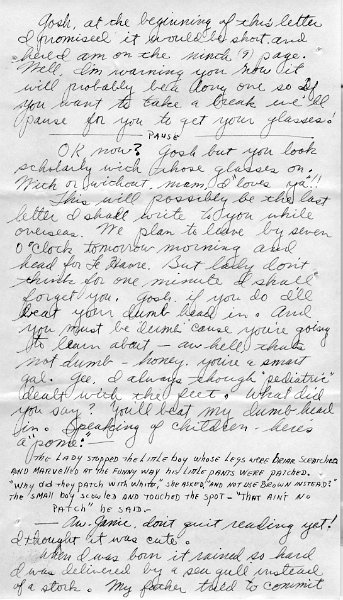 Gosh, at the beginning of this letter
I promised it would be short and
here I am on the ninth (9) page.
Well, I'm warning you now it
will probably be a long one so if
you want to take a break we'll
pause for you to get your glasses!
PAUSE
OK now? Gosh but you look
scholarly with those glasses on.
With or without, mam, I loves ya'!!
This will possibly be the last
letter I shall write to you while
overseas. We plan to leave by seven
o'clock tomorrow morning and
head for Le Havre. But lady don't
think for one minute I shall
forget you. Gosh, if you do I'll
beat your dumb head in. And
you must be dumb 'cause you're going
to learn about - aw hell, that's
not dumb - honey, you're a smart
gal. Gee, I always though "pediatric"
dealt with the feet. What did
you say? You'll beat my dumb head
in. Speaking of children - here's
a "pome": -
THE LADY STOPPED THE LITTLE BOY WHOSE LEGS WERE BRIAR SCRATCHED
AND MARVELLED AT THE FUNNY WAY HIS LITTLE PANTS WERE PATCHED.
"WHY DID THEY PATCH WITH WHITE," SHE ASKED "AND NOT USE BROWN INSTEAD?"
THE SMALL BOY SCOWLED AND TOUCHED THE SPOT - "THAT AIN'T NO
PATCH" HE SAID. -
- Aw, Janie, don't quit reading yet!
I thought it was cute.
When I was born it rained so hard
I was delivered by a sea gull instead
of a stork. My father tried to commit